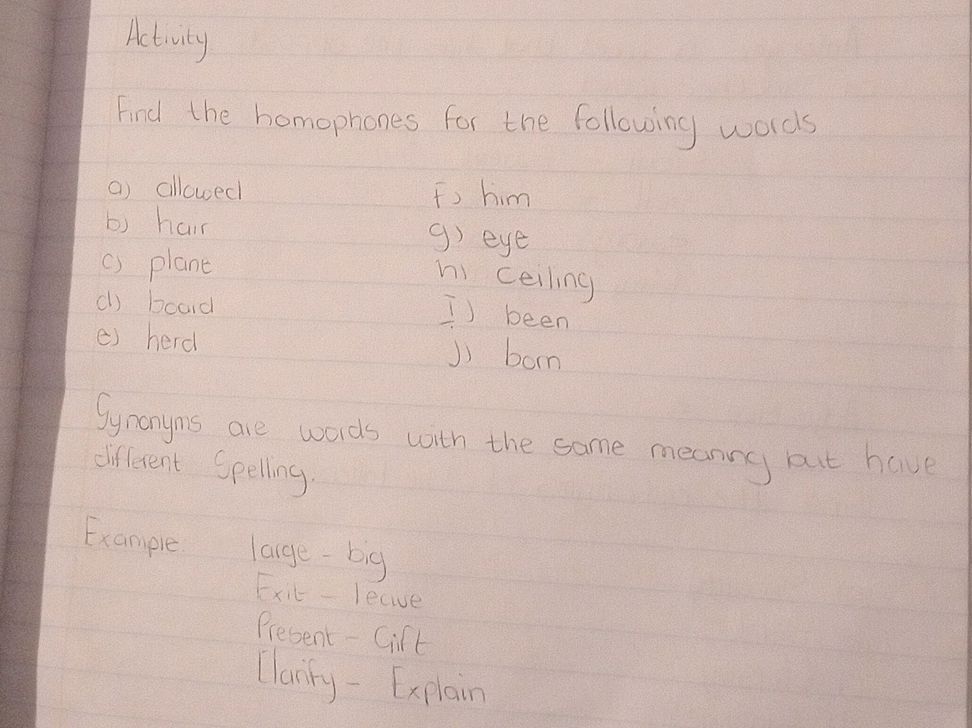 Activity
Find the homophones for the following words
a) allowed
b) hair
c) plane
d) board
e) herd
f) him
g) eye
h) Ceiling
I) been
J) born
Synonyms are words with the same meaning but have
different Spelling.
Example. large - big
Exit - leave
Present - Gift
Clarify - Explain